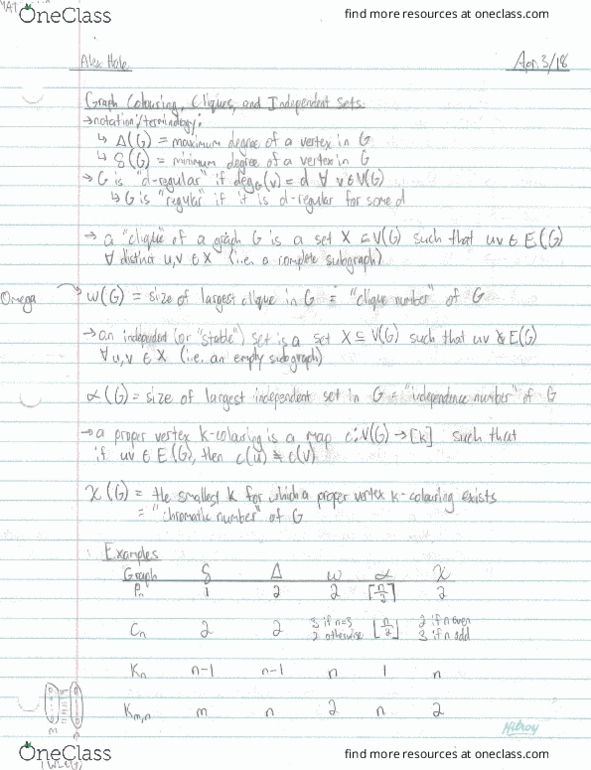 MAT
OneClass
find more resources at oneclass.com
Alex Hale
Apr. 3/18
Graph Colouring, Cliques, and Independent Sets
→notation/terminology:
↳ Δ(G) = maximum degree of a vertex in G
↳ δ(G) = minimum degree of a vertex in G
→ G is "d-regular" if deg_G(v) = d ∀ v∈V(G)
↳ G is "regular" if it is d-regular for some d
→ a "clique" of a graph G is a set X ⊆ V(G) such that uv ∈ E(G)
∀ distinct u,v ∈ X (i.e. a complete subgraph)
Omega
ω(G) = size of largest clique in G = "clique number" of G
→ an independent (or "stable") set is a set X ⊆ V(G) such that uv ∉ E(G)
∀ u,v ∈ X (i.e. an empty subgraph)
α(G) = size of largest independent set in G = "independence number" of G
→ a proper vertex k-colouring is a map c: V(G) → [k] such that
if uv ∈ E(G), then c(u) ≠ c(v)
χ(G) = the smallest k for which a proper vertex k-colouring exists
= "chromatic number" of G
Examples
Graph δ Δ ω α χ
Pn 1 2 2 ⌈n/2⌉ 2
Cn 2 2 3 if n=3 ⌊n/2⌋ 2 if n even
2 otherwise 3 if n odd
Kn n-1 n-1 n 1 n
Km,n m n 2 n 2
m n
Hilroy
OneClass
find more resources at oneclass.com